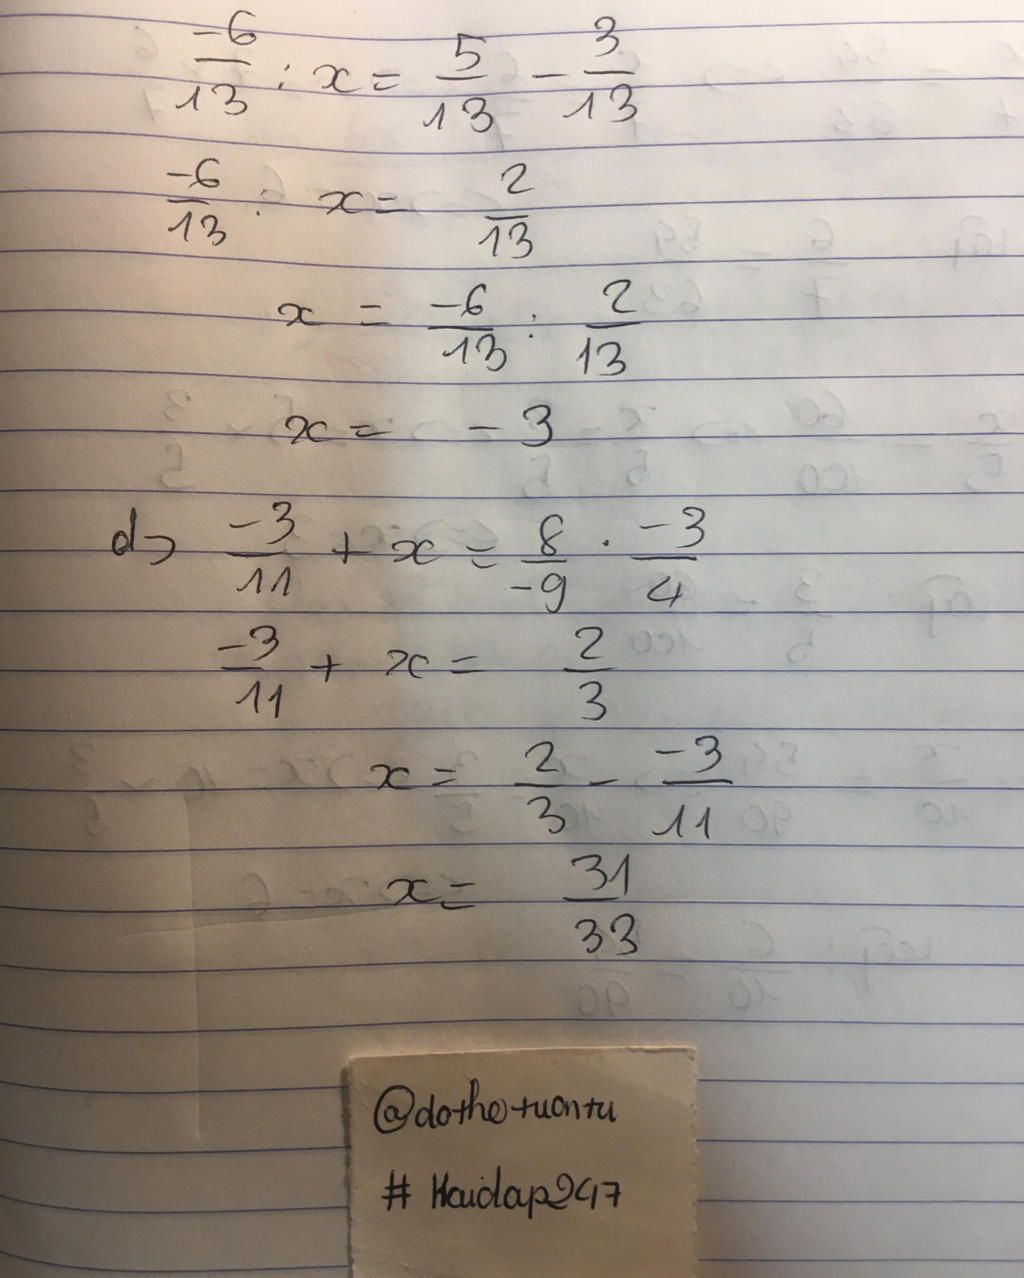 -6/13 : x = 5/13 - 3/13
-6/13 : x = 2/13
x = -6/13 : 2/13
x = -3
d> -3/11 + x = 8/-9 . -3/4
-3/11 + x = 2/3
x = 2/3 - -3/11
x = 31/33
@dothetuantu
# Hoidap247